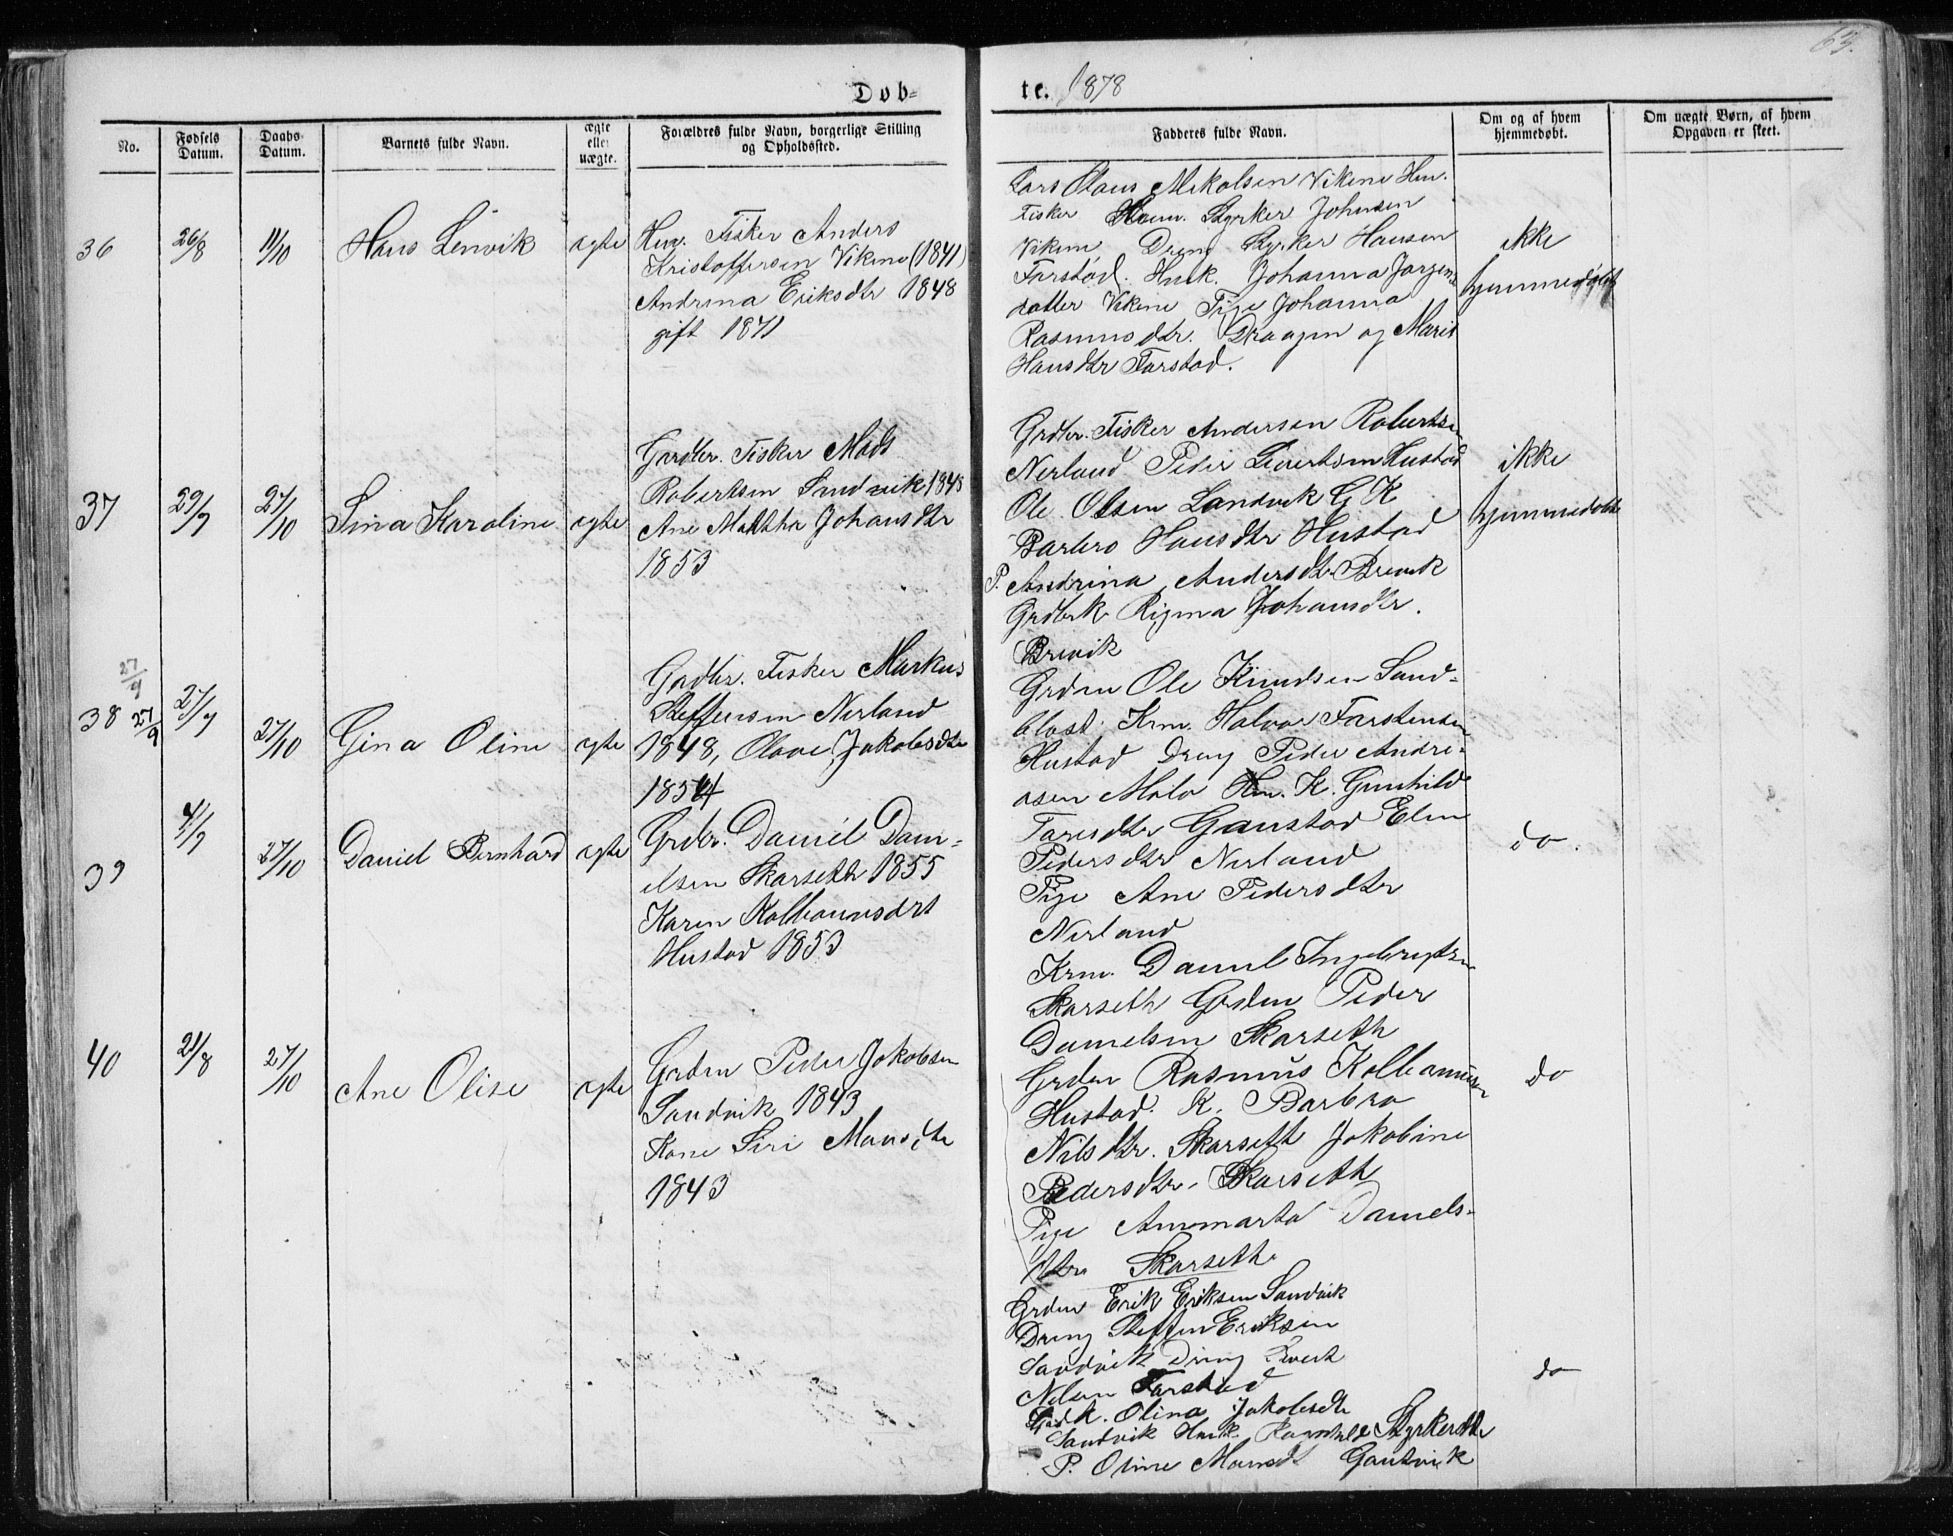 63.
Døb-
te. 1878
No.
Fødsels Datum.
Daabs Datum.
Barnets fulde Navn.
ægte eller uægte.
Forældres fulde Navn, borgerlige Stilling og Opholdssted.
Fadderes fulde Navn.
Om og af hvem hjemmedøbt.
Om uægte Børn, af hvem Opgaven er skeet.
36
26/8
11/10
Hans Lenvik
ægte
Hm. Fisker Anders
Kristoffersen Vikene (1841)
Andrina Eriksdtr 1848
gift 1871
Lars Olaus Mikalsen Vikene Hm.
Fisker Styrker Johnsen
Vikene Dreng Styrker Hansen
Farstad. Husk. Johanna Jørgens
datter Vikene Pige Johanna
Rasmusdtr. og Marit
Hansdtr Farstad.
ikke
hjemmedøbt
37
29/7
27/10
Sina Karoline
ægte
Gardbr. Fisker Mads
Robertsen Sandvik 1848
Ane Martha Johansdtr
1853
Grdbr. Fisker Andersen Robertsen
Nerland Peder Sivertsen Hustad
Ole Olsen Sandvik G K
Barbro Hansdtr Hustad
P. Andrina Andersdtr Brevik
Grdbrk Johansdtr.
Brevik
ikke
hjemmedøbt
27/9
38
27/9
27/7
27/10
Gina Oline
ægte
Gardbr. Fisker Markus
Steffensen Nerland
1848, Olave Jakobsdtr
1854
Grdm Ole Knudsen Sand-
blost. Krm. Halvor Farstensen
Hustad Dreng Peder Andre-
asen Malo Hm. K. Gunhild
Taresdtr Gaustad Elen
Pedersdtr Nerland
Pige Ane Pedersdtr
Nerland
do.
39
4/7
27/10
Daniel Bernhard
ægte
Grdbr. Daniel Dani-
elsen Skarseth 1855
Karen Kolbeensdtr
Hustad 1853
Krm. Daniel Ingebrigtsen
Skarseth Grdm Peder
Danielsen Skarseth
Grdm Rasmus Kolbeensen
Hustad. K. Barbro
Nilsdtr. Skarseth Jakobine
Pedersdtr. Skarseth
Pige Annmarta Daniels-
dtr Skarseth
do
40
21/8
27/10
Ane Olise
ægte
Grdm Peder Jakobsen
Sandvik 1843
Kone Siri Monsdtr
1843
Grdm Erik Eriksen Sandvik
Dreng Steffen Eriksen
Sandvik Dreng Sivert
Nilsen Farstad
K. Olina Jakobsdtr
Sandvik Husk. Ragnhild Styrkersdtr
P. Oline Monsdt Gautvik
do